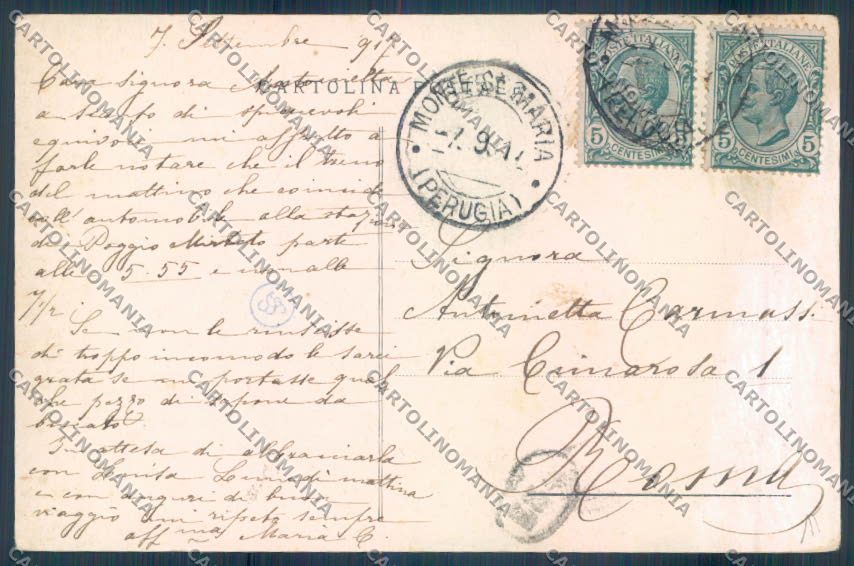 7. Settembre 917
CARTOLINA POSTALE
Cara signora Antonietta
a scanso di spiacevoli
equivoci mi affretto a
farle notare che il treno
del mattino che coincide
coll' automobile alla stazione
di Poggio Mirteto parte
alle 5.55 e non alle
7½
Se non le riuscisse
di troppo incomodo le sarei
grata se mi portasse qual
che pezzo di sapone da
bucato.
In attesa di abbracciarla
con Luisa Lunedì mattina
e con auguri di buon
viaggio mi ripeto sempre
aff.ma Maria C.
MONTE S. MARIA
7.9.17
(PERUGIA)
POSTE ITALIANE
5 CENTESIMI 5
POSTE ITALIANE
5 CENTESIMI 5
Signora
Antonietta Carmass
Via Cimarosa 1
Roma
CARTOLINOMANIA